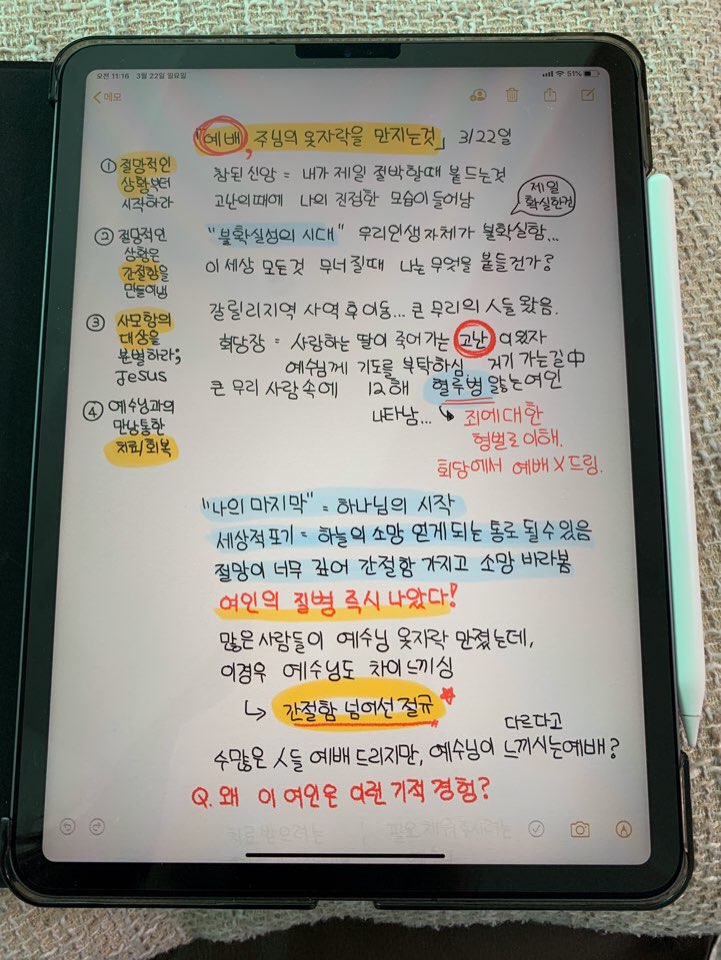 오전 11:16 3월 22일 일요일
51%
메모
「예배, 주님의 옷자락을 만지는것」 3/22일
① 절망적인
상황부터
시작하라
② 절망적인
상황은
간절함을
만들어냄
③ 사모함의
대상을
분별하라;
Jesus
④ 예수님과의
만남통한
치료/회복
참된신앙 = 내가 제일 절박할때 붙드는것
고난의때에 나의 진정한 모습이들어남
제일
확실한것
"불확실성의 시대" 우리인생자체가 불확실함...
이세상 모든것 무너질때 나는무엇을 붙들건가?
갈릴리지역 사역 후이동... 큰 무리의 人들 왔음.
회당장 = 사랑하는 딸이 죽어가는 고난 여있자
예수님께 기도를 부탁하심 거기 가는길中
큰 무리 사람속에 12해 혈루병 앓는여인
나타남...
죄에대한
형벌로이해.
회당에서 예배 X 드림.
"나의 마지막" = 하나님의 시작
세상적포기 = 하늘의 소망 얻게되는 통로 될수있음
절망이 너무 깊어 간절함 가지고 소망 바라봄
여인의 질병 즉시 나았다!
많은사람들이 예수님 옷자락 만졌는데,
이경우 예수님도 차이느끼심
↳ 간절함 넘어선 절규
다르다고
수많은 人들 예배 드리지만, 예수님이 느끼시는예배?
Q. 왜 이 여인은 이런 기적 경험?